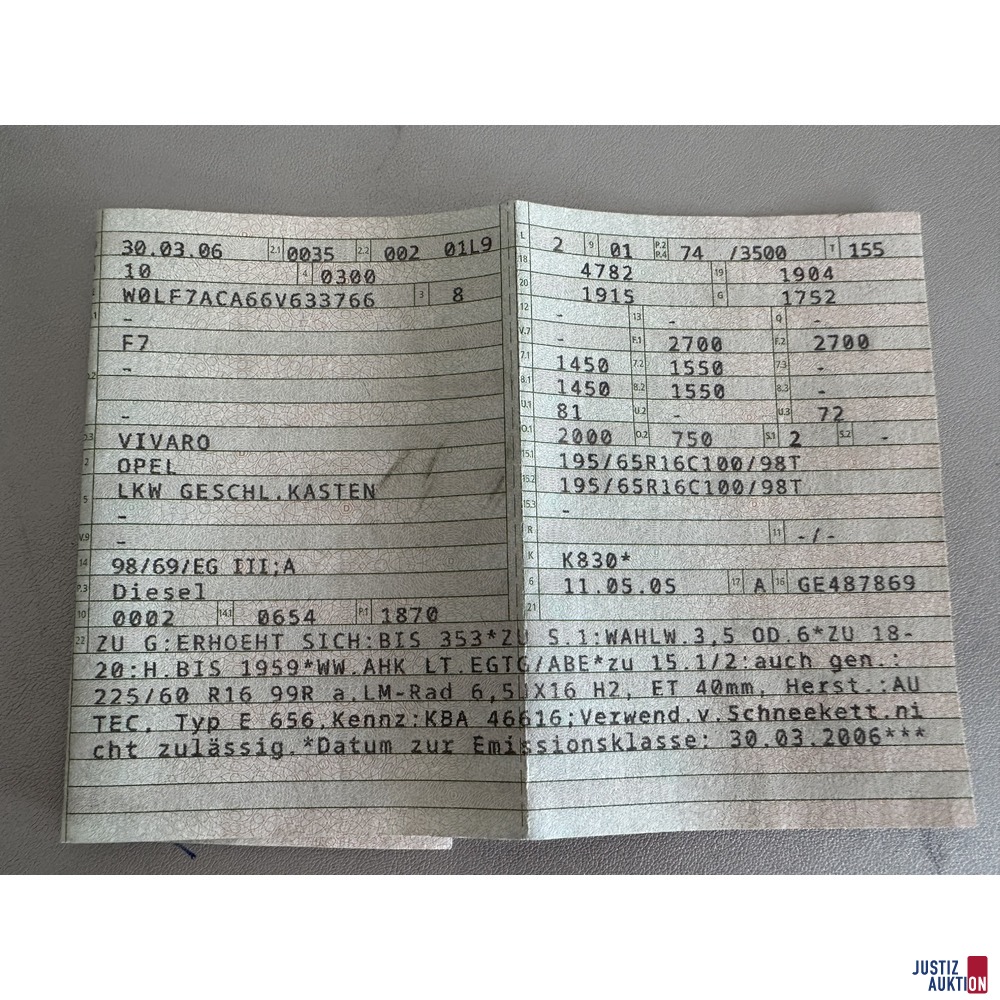 30.03.06 2.1 0035 2.2 002 01L9
10 4 0300
W0LF7ACA66V633766 3 8
-
F7
-
-
VIVARO
2 OPEL
5 LKW GESCHL.KASTEN
-
V.9 -
14 98/69/EG III;A
P.3 Diesel
10 0002 14.1 0654 P.1 1870
L 2 9 01 P.2 P.4 74 /3500 T 155
18 4782 19 1904
20 1915 G 1752
12 - 13 - Q -
V.7 - F.1 2700 F.2 2700
7.1 1450 7.2 1550 7.3 -
8.1 1450 8.2 1550 8.3 -
U.1 81 U.2 - U.3 72
O.1 2000 O.2 750 S.1 2 S.2 -
15.1 195/65R16C100/98T
15.2 195/65R16C100/98T
15.3 -
R 11 -/-
K K830*
6 11.05.05 17 A 16 GE487869
21
22 ZU G:ERHOEHT SICH:BIS 353*ZU S.1:WAHLW.3,5 OD.6*ZU 18-
20:H.BIS 1959*WW.AHK LT.EGTG/ABE*zu 15.1/2:auch gen.:
225/60 R16 99R a.LM-Rad 6,5JX16 H2, ET 40mm, Herst.:AU
TEC, Typ E 656,Kennz:KBA 46616;Verwend.v.Schneekett.ni
cht zulässig.*Datum zur Emissionsklasse: 30.03.2006***
JUSTIZ
AUKTION